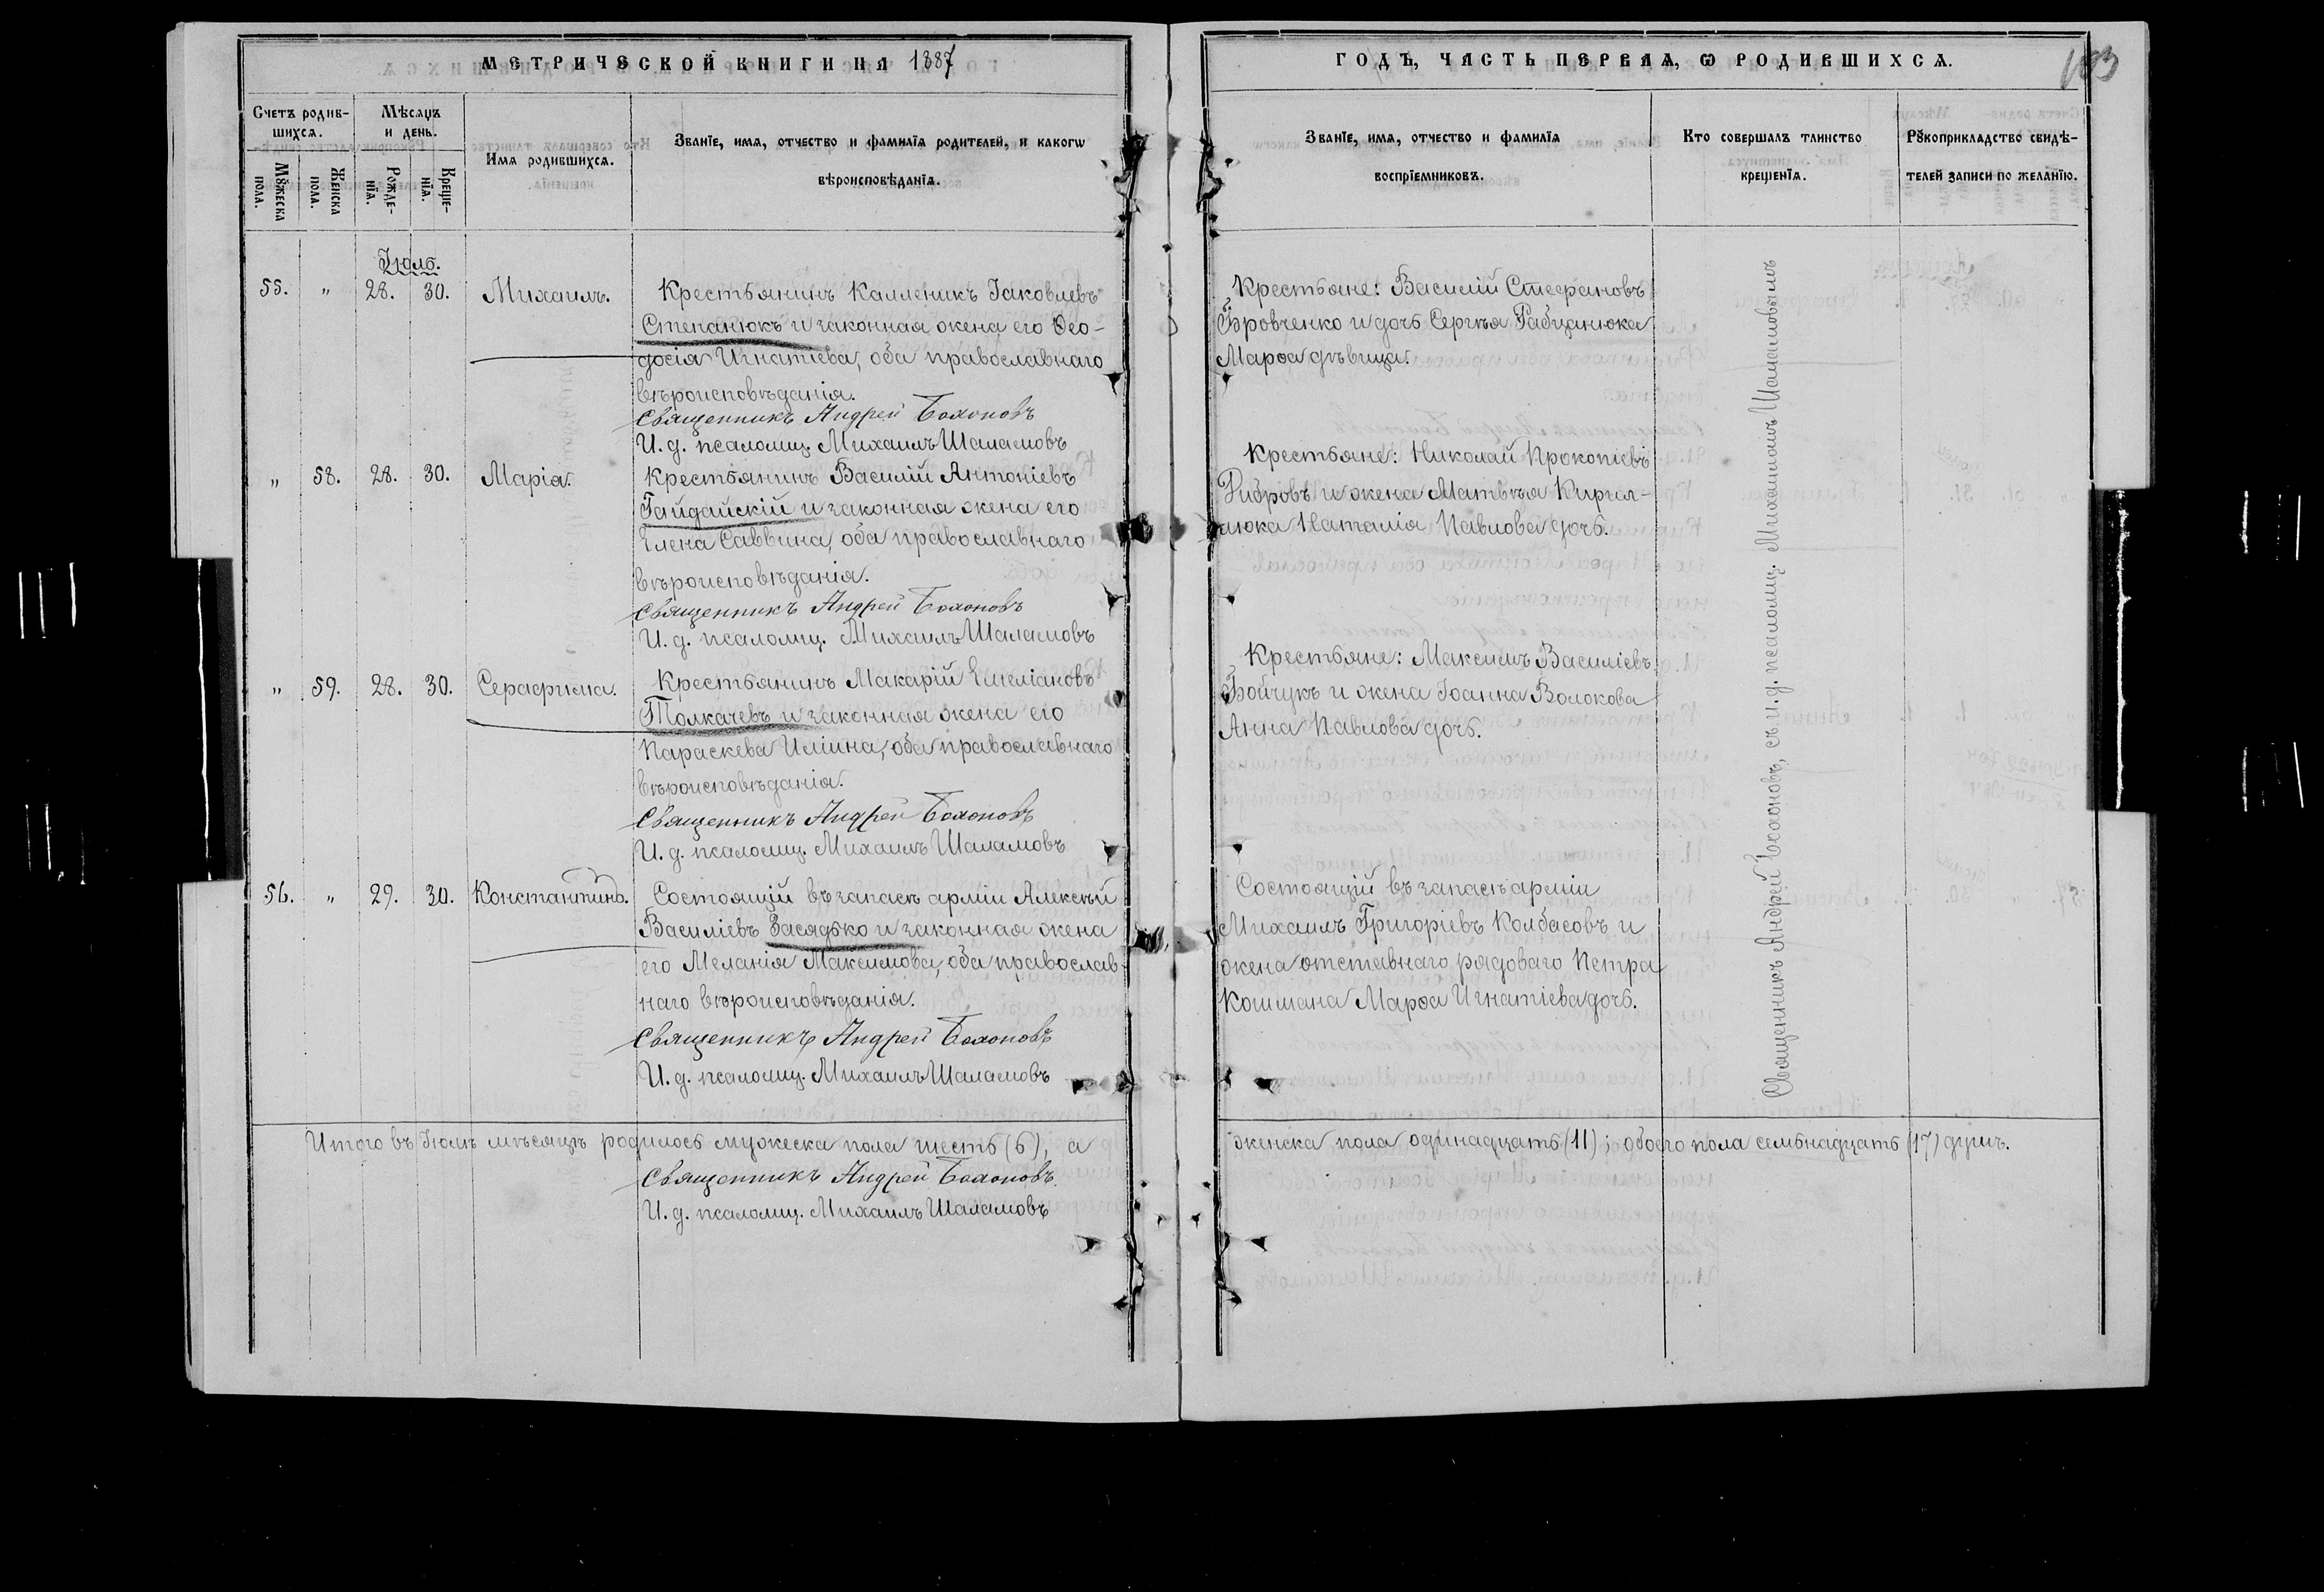 МЕТРИЧЕСКОЙ КНИГИ НА 1887
ГОДЪ, ЧАСТЬ ПЕРВАЯ, Ѡ РОДИВШИХСѦ.
Счетъ родив-
шихсѧ.
Мѣсѧцъ
и день.
Мꙋжеска
пола.
Женска
пола.
Рожде-
нїѧ.
Креще-
нїѧ.
Имѧ родившихсѧ.
Званїе, имѧ, отчество и фамилїѧ родителей, и какогѡ
вѣроисповѣданїѧ.
Званїе, имѧ, отчество и фамилїѧ
воспрїемниковъ.
Кто совершалъ таинство
крещенїѧ.
Рꙋкоприкладство свидѣ-
телей записи по желанїю.
Іюль.
55. " 28. 30. Михаилъ.
Крестьянинъ Каллиникъ Іаковлевъ
Степанюкъ и законная жена его Ѳео-
досія Игнатіева, оба православнаго
вѣроисповѣданія.
Священникъ Андрей Бохоновъ
И. д. псаломщ. Михаилъ Шаламовъ
Крестьяне: Василій Стефановъ
Бровченко и дочь Сергѣя Рабцанюка
Марѳа дѣвица.
" 58. 28. 30. Марія.
Крестьянинъ Василій Антоніевъ
Гайдайскій и законная жена его
Елена Саввина, оба православнаго
вѣроисповѣданія.
Священникъ Андрей Бохоновъ
И. д. псаломщ. Михаилъ Шаламовъ
Крестьяне: Николай Прокопіевъ
Рибровъ и жена Матвѣя Кирил-
люка Наталія Павлова дочь.
" 59. 28. 30. Серафима.
Крестьянинъ Макарій Емеліановъ
Толкачевъ и законная жена его
Параскева Иліина, оба православнаго
вѣроисповѣданія.
Священникъ Андрей Бохоновъ
И. д. псаломщ. Михаилъ Шаламовъ
Крестьяне: Максимъ Василіевъ
Бойчукъ и жена Іоанна Волокова
Анна Павлова дочь.
56. " 29. 30. Константинъ.
Состоящій въ запасѣ арміи Алексѣй
Василіевъ Засядько и законная жена
его Меланія Максимова, оба православ-
наго вѣроисповѣданія.
Священникъ Андрей Бохоновъ
И. д. псаломщ. Михаилъ Шаламовъ
Состоящій въ запасѣ арміи
Михаилъ Григоріевъ Колбасовъ и
жена отставнаго рядоваго Петра
Кошмана Марѳа Игнатіева дочь.
Священникъ Андрей Бохоновъ, съ и. д. псаломщ. Михаиломъ Шаламовымъ
Итого въ Іюлѣ мѣсяцѣ родилось мужеска пола шесть (6), а
женска пола одинадцать (11); обоего пола семьнадцать (17) душъ.
Священникъ Андрей Бохоновъ.
И. д. псаломщ. Михаилъ Шаламовъ